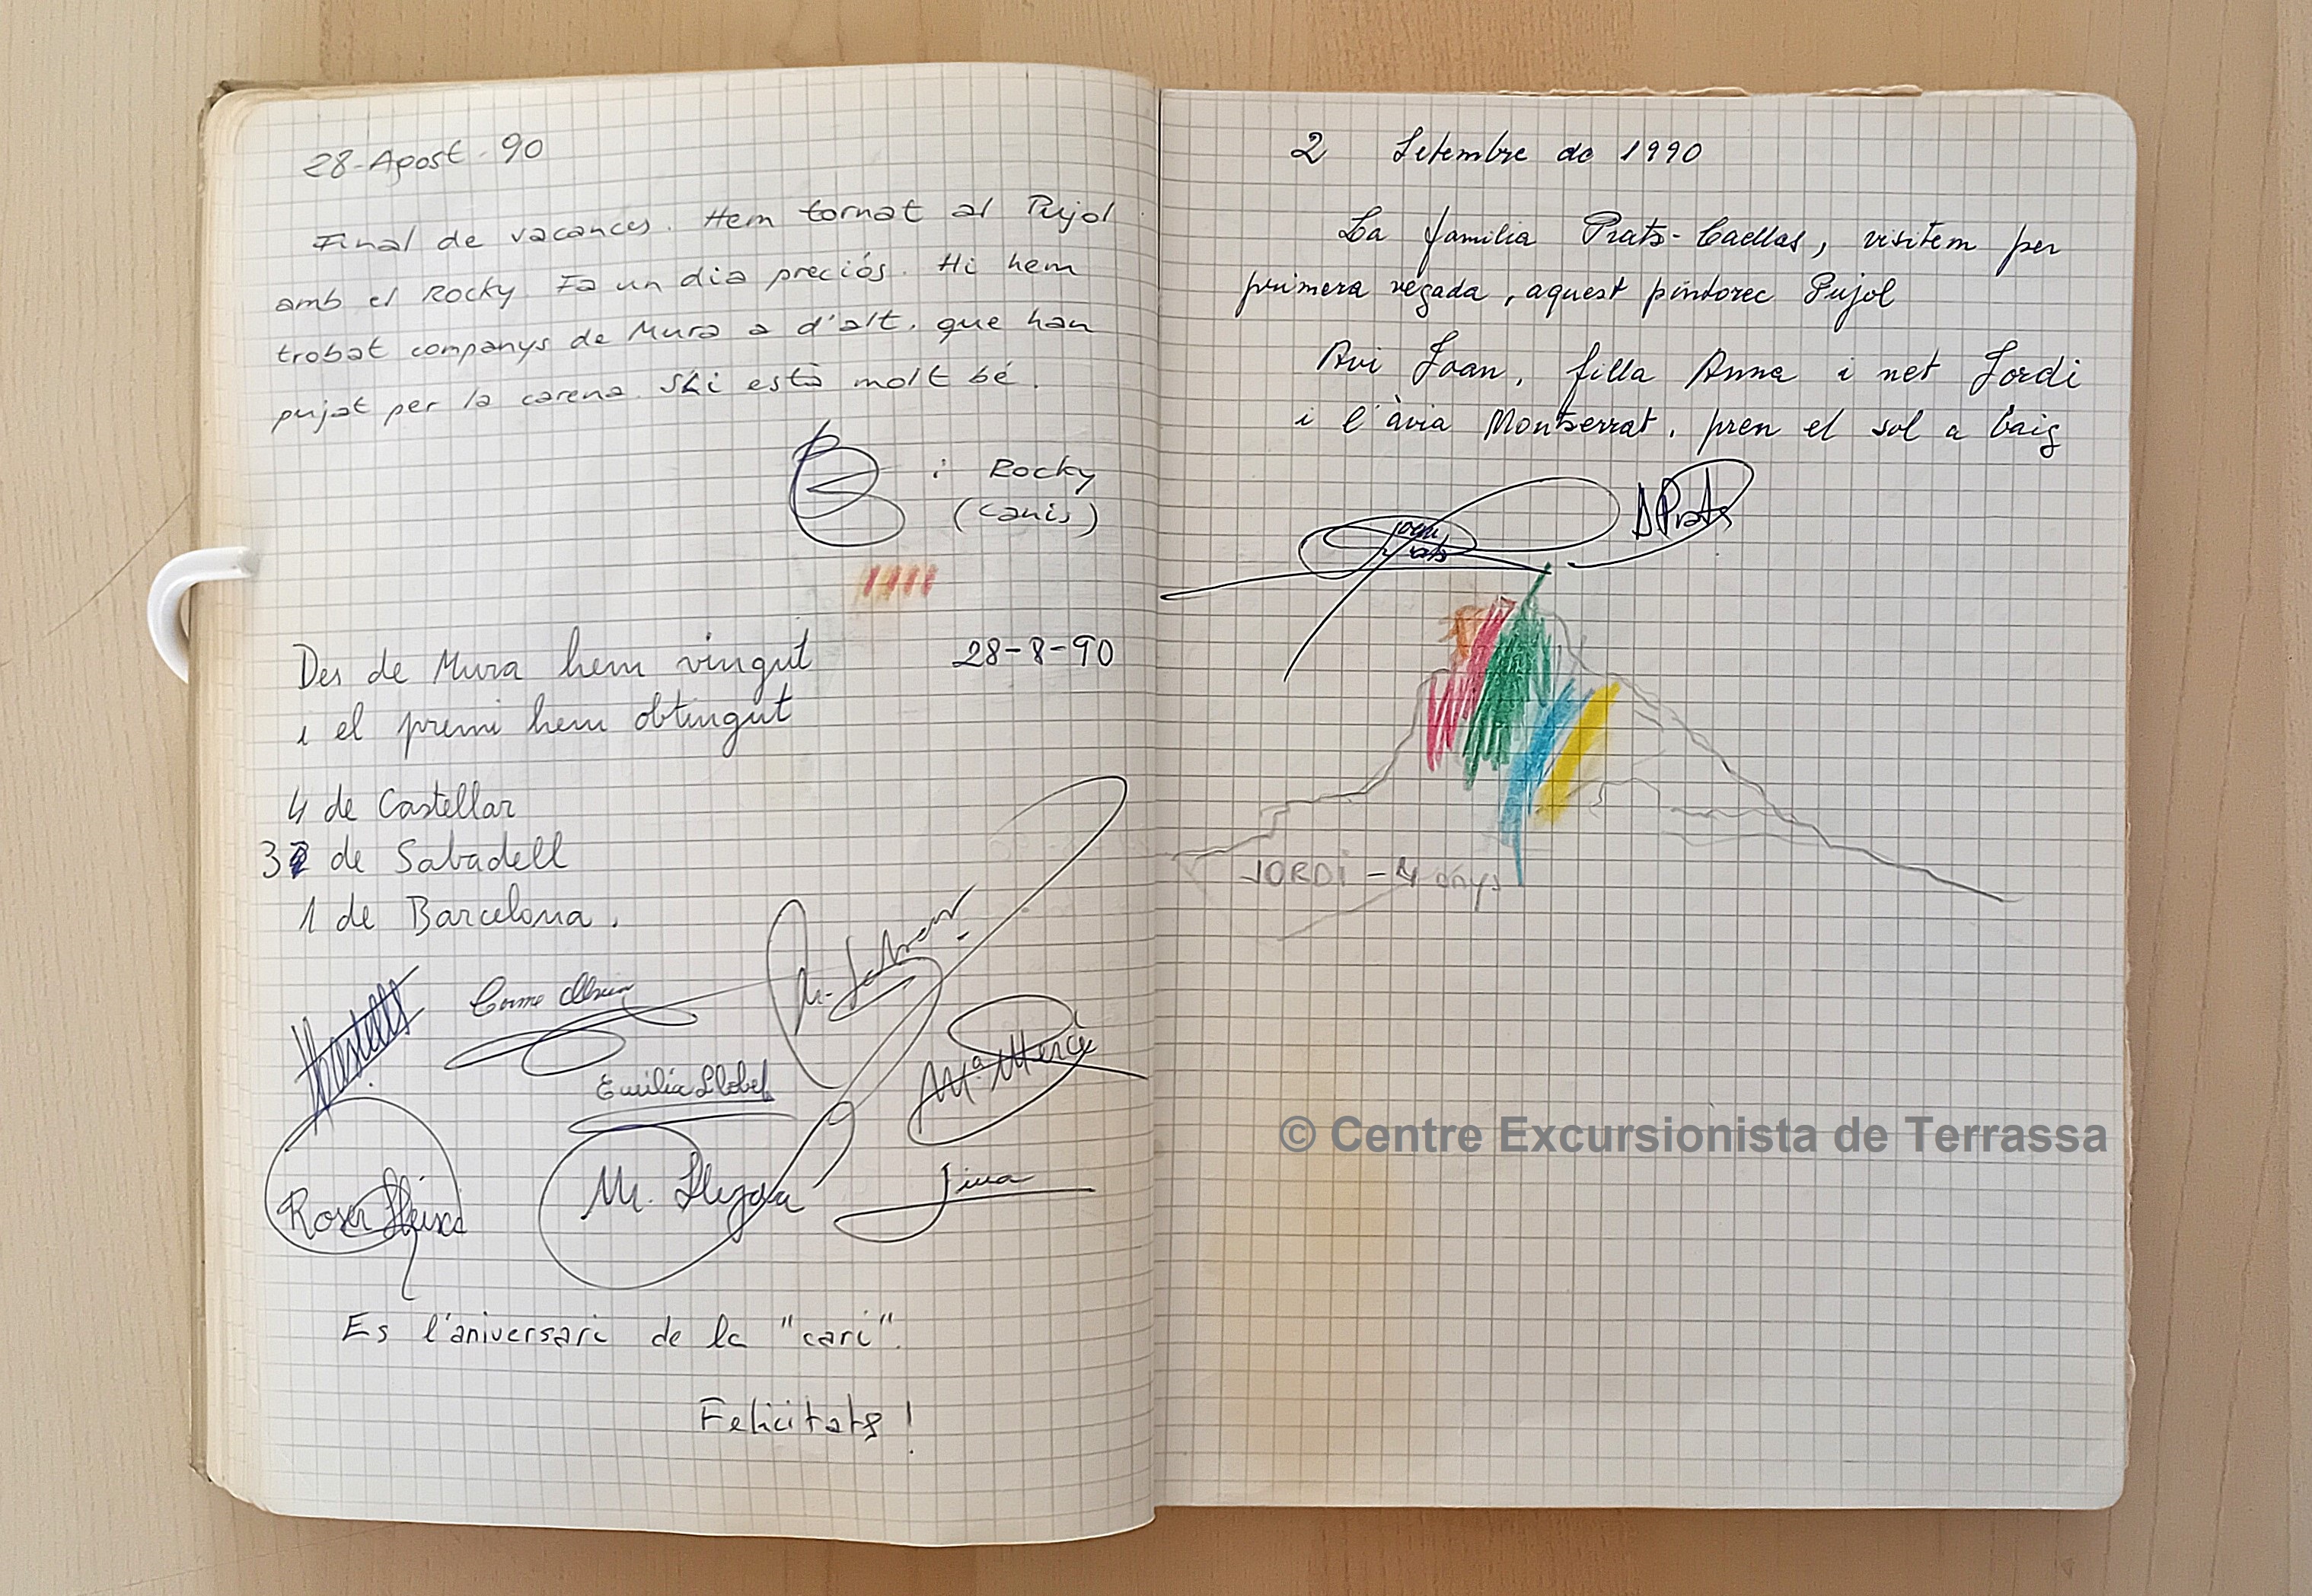 28-Agost-90
Final de vacances. Hem tornat al Pujol
amb el Rocky. Fa un dia preciós. Hi hem
trobat companys de Mura a d'alt, que han
pujat per la carena. S'hi està molt bé.
i Rocky
(canis)
Des de Mura hem vingut 28-8-90
i el premi hem obtingut
4 de Castellar
3 de Sabadell
1 de Barcelona.
Emilia Llobet
Mª Mercè
Roser
M.
Es l'aniversari de la "cari".
Felicitats!
2 Setembre de 1990
La familia Prats-Caellas, visitem per
primera vegada, aquest pintorec Pujol
Avi Joan, filla Anna i net Jordi
i l'àvia Montserrat, pren el sol a baig
Prats
APrats
JORDI - 4 anys
© Centre Excursionista de Terrassa